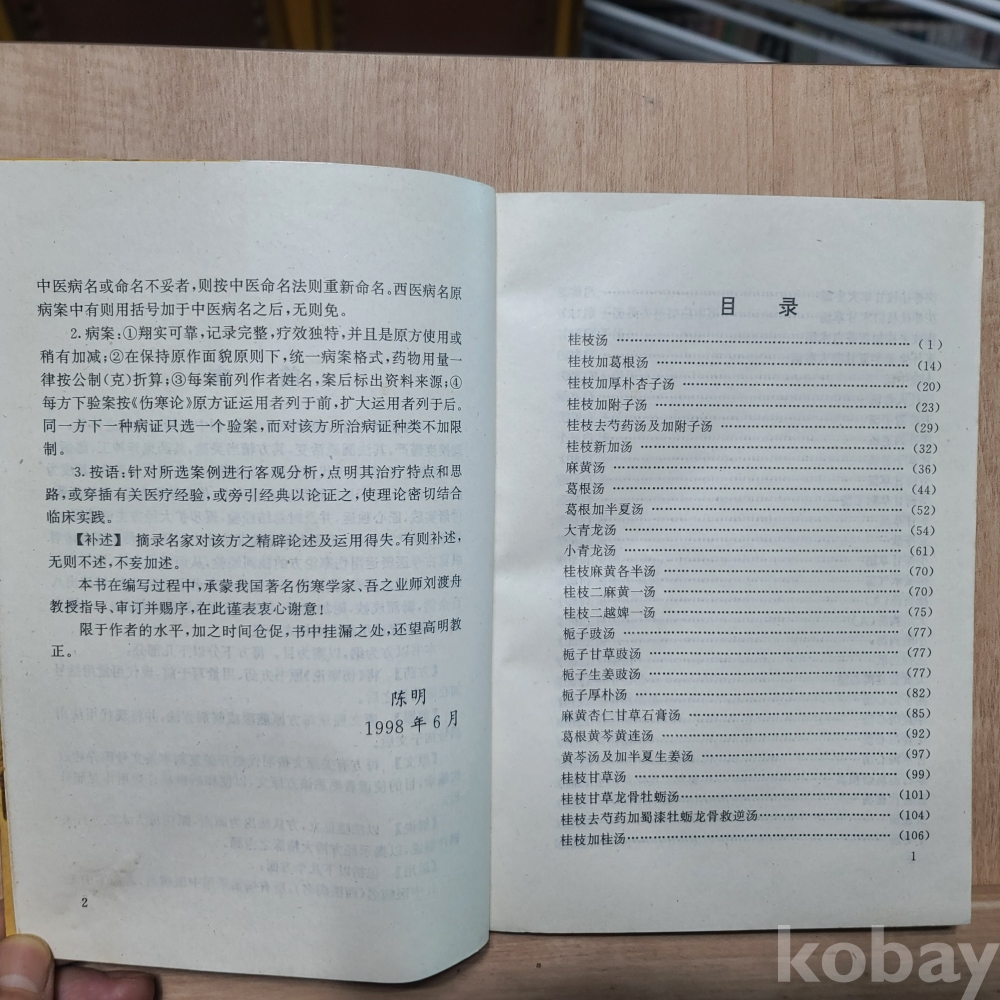 中医病名或命名不妥者,则按中医命名法则重新命名。西医病名原
病案中有则用括号加于中医病名之后,无则免。
2. 病案:①翔实可靠,记录完整,疗效独特,并且是原方使用或
稍有加减;②在保持原作面貌原则下,统一病案格式,药物用量一
律按公制(克)折算;③每案前列作者姓名,案后标出资料来源;④
每方下验案按《伤寒论》原方证运用者列于前,扩大运用者列于后。
同一方下一种病证只选一个验案,而对该方所治病证种类不加限
制。
3. 按语:针对所选案例进行客观分析,点明其治疗特点和思
路,或穿插有关医疗经验,或旁引经典以论证之,使理论密切结合
临床实践。
【补述】 摘录名家对该方之精辟论述及运用得失。有则补述,
无则不述,不妄加述。
本书在编写过程中,承蒙我国著名伤寒学家、吾之业师刘渡舟
教授指导、审订并赐序,在此谨表衷心谢意!
限于作者的水平,加之时间仓促,书中挂漏之处,还望高明教
正。
陈明
1998 年 6 月
2
目 录
桂枝汤 (1)
桂枝加葛根汤 (14)
桂枝加厚朴杏子汤 (20)
桂枝加附子汤 (23)
桂枝去芍药汤及加附子汤 (29)
桂枝新加汤 (32)
麻黄汤 (36)
葛根汤 (44)
葛根加半夏汤 (52)
大青龙汤 (54)
小青龙汤 (61)
桂枝麻黄各半汤 (70)
桂枝二麻黄一汤 (70)
桂枝二越婢一汤 (75)
栀子豉汤 (77)
栀子甘草豉汤 (77)
栀子生姜豉汤 (77)
栀子厚朴汤 (82)
麻黄杏仁甘草石膏汤 (85)
葛根黄芩黄连汤 (92)
黄芩汤及加半夏生姜汤 (97)
桂枝甘草汤 (99)
桂枝甘草龙骨牡蛎汤 (101)
桂枝去芍药加蜀漆牡蛎龙骨救逆汤 (104)
桂枝加桂汤 (106)
1
kobay